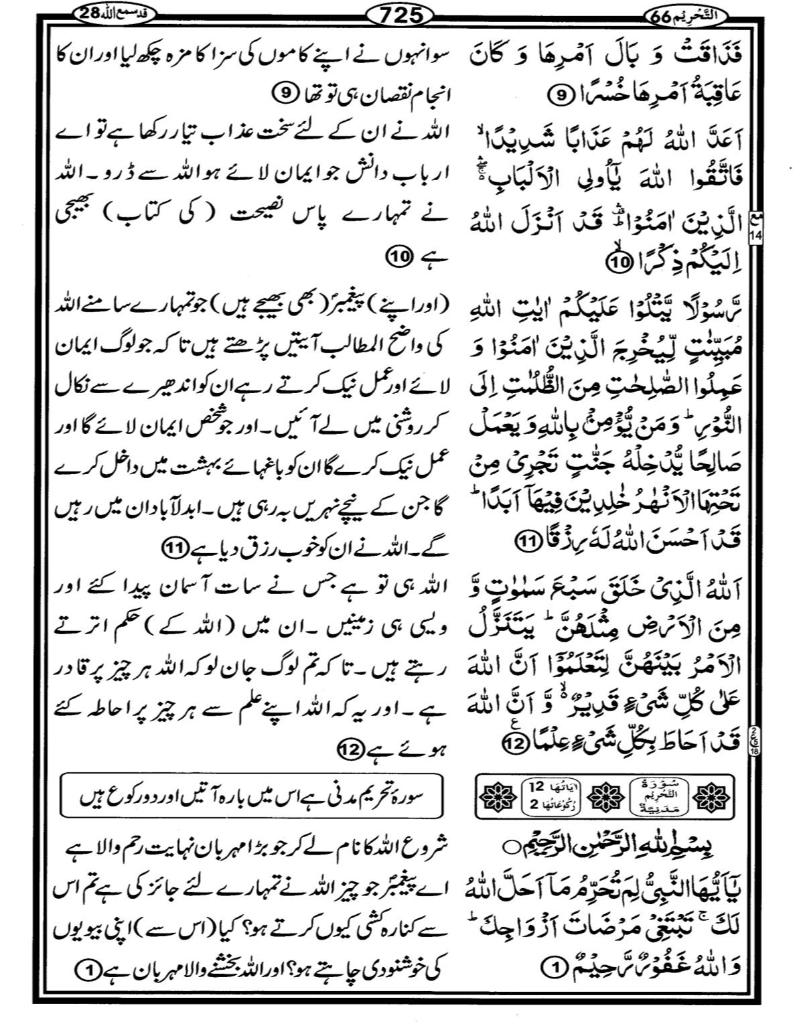 التَّحْرِيْم 66
725
قد سمع الله 28
فَذَاقَتْ وَ بَالَ اَمْرِهَا وَ كَانَ
عَاقِبَةُ اَمْرِهَا خُسْرًا 9
اَعَدَّ اللّٰهُ لَهُمْ عَذَابًا شَدِيْدًا ۙ
فَاتَّقُوا اللّٰهَ يٰۤاُولِى الْاَلْبَابِ ۛۚۖ
الَّذِيْنَ اٰمَنُوْا ۛؕ قَدْ اَنْزَلَ اللّٰهُ
اِلَيْكُمْ ذِكْرًا ۙ 10
رَّسُوْلًا يَّتْلُوْا عَلَيْكُمْ اٰيٰتِ اللّٰهِ
مُبَيِّنٰتٍ لِّيُخْرِجَ الَّذِيْنَ اٰمَنُوْا وَ
عَمِلُوا الصّٰلِحٰتِ مِنَ الظُّلُمٰتِ اِلَى
النُّوْرِ ؕ وَ مَنْ يُّؤْمِنْۢ بِاللّٰهِ وَ يَعْمَلْ
صَالِحًا يُّدْخِلْهُ جَنّٰتٍ تَجْرِىْ مِنْ
تَحْتِهَا الْاَنْهٰرُ خٰلِدِيْنَ فِيْهَاۤ اَبَدًا ؕ
قَدْ اَحْسَنَ اللّٰهُ لَهٗ رِزْقًا 11
اَللّٰهُ الَّذِىْ خَلَقَ سَبْعَ سَمٰوٰتٍ وَّ
مِنَ الْاَرْضِ مِثْلَهُنَّ ؕ يَتَنَزَّلُ
الْاَمْرُ بَيْنَهُنَّ لِتَعْلَمُوْۤا اَنَّ اللّٰهَ
عَلٰى كُلِّ شَىْءٍ قَدِيْرٌ ۙ۬ وَّ اَنَّ اللّٰهَ
قَدْ اَحَاطَ بِكُلِّ شَىْءٍ عِلْمًا 12
سُوْرَةُ التَّحْرِيْمِ مَدَنِيَّةٌ
اٰيَاتُهَا 12 رُكُوْعَاتُهَا 2
بِسْمِ اللّٰهِ الرَّحْمٰنِ الرَّحِيْمِ ○
يٰۤاَيُّهَا النَّبِىُّ لِمَ تُحَرِّمُ مَاۤ اَحَلَّ اللّٰهُ
لَكَ ۚ تَبْتَغِىْ مَرْضَاتَ اَزْوَاجِكَ ؕ
وَ اللّٰهُ غَفُوْرٌ رَّحِيْمٌ 1
سو انہوں نے اپنے کاموں کی سزا کا مزہ چکھ لیا اور ان کا
انجام نقصان ہی تو تھا 9
اللہ نے ان کے لئے سخت عذاب تیار رکھا ہے تو اے
ارباب دانش جو ایمان لائے ہو اللہ سے ڈرو۔ اللہ
نے تمہارے پاس نصیحت (کی کتاب) بھیجی
ہے 10
(اور اپنے) پیغمبرؐ (بھی بھیجے ہیں) جو تمہارے سامنے اللہ
کی واضح المطالب آیتیں پڑھتے ہیں تا کہ جو لوگ ایمان
لائے اور عمل نیک کرتے رہے ان کو اندھیرے سے نکال
کر روشنی میں لے آئیں۔ اور جو شخص ایمان لائے گا اور
عمل نیک کرے گا ان کو باغہائے بہشت میں داخل کرے
گا جن کے نیچے نہریں بہ رہی ہیں۔ ابد الآباد ان میں رہیں
گے۔ اللہ نے ان کو خوب رزق دیا ہے 11
اللہ ہی تو ہے جس نے سات آسمان پیدا کئے اور
ویسی ہی زمینیں۔ ان میں (اللہ کے) حکم اترتے
رہتے ہیں۔ تا کہ تم لوگ جان لو کہ اللہ ہر چیز پر قادر
ہے۔ اور یہ کہ اللہ اپنے علم سے ہر چیز پر احاطہ کئے
ہوئے ہے 12
سورۂ تحریم مدنی ہے اس میں بارہ آئتیں اور دو رکوع ہیں
شروع اللہ کا نام لے کر جو بڑا مہربان نہایت رحم والا ہے
اے پیغمبرؐ جو چیز اللہ نے تمہارے لئے جائز کی ہے تم اس
سے کنارہ کشی کیوں کرتے ہو؟ کیا (اس سے) اپنی بیویوں
کی خوشنودی چاہتے ہو؟ اور اللہ بخشنے والا مہربان ہے 1
مع 14